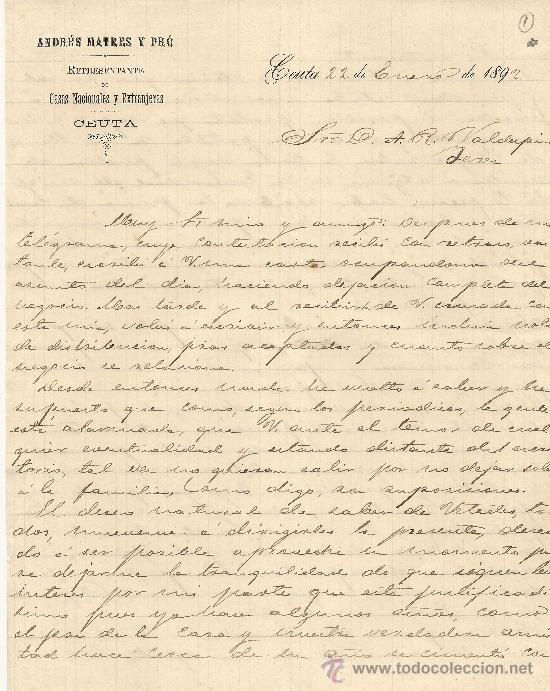 ANDRÉS MATRES Y PRÓ
REPRESENTANTE
DE
Casas Nacionales y Extranjeras
CEUTA
1
Ceuta 22 de Enero de 1892
Sr. D. A. R. Valdespi
Jerez
Muy Sr mio y amigo: Despues de mi
telégrama, cuya contestacion recibí con retraso, bas
tante, escribí á V una carta ocupandome del
asunto del dia, haciendo dejacion completa del
negocio. Mas tarde y al recibir de V.
esta mia, volví á escribir y entonces
de distribucion, aceptadas y cuanto sobre el
negocio se
Desde entonces nada he vuelto á saber y he
supuesto que como, segun los periodicos, la gente
está alarmada, que V ante el temor de cual
quier eventualidad y estando distante del escri
torio, tal vez no quieran salir por no dejar sola
á la familia, como digo, son suposiciones.
El deseo natural de saber de Ustedes to
dos, mueveme á dirigirles la presente, desean
do á ser posible aproveche un momento pa
se dejarme la tranquilidad de que siguen bien
interés por mi parte que está justificadi
simo pues ya hace algunos años, conocí
el pan de la casa y nuestra verdadera amis
tad hace cerca de un año se cimentó con
www.todocoleccion.net